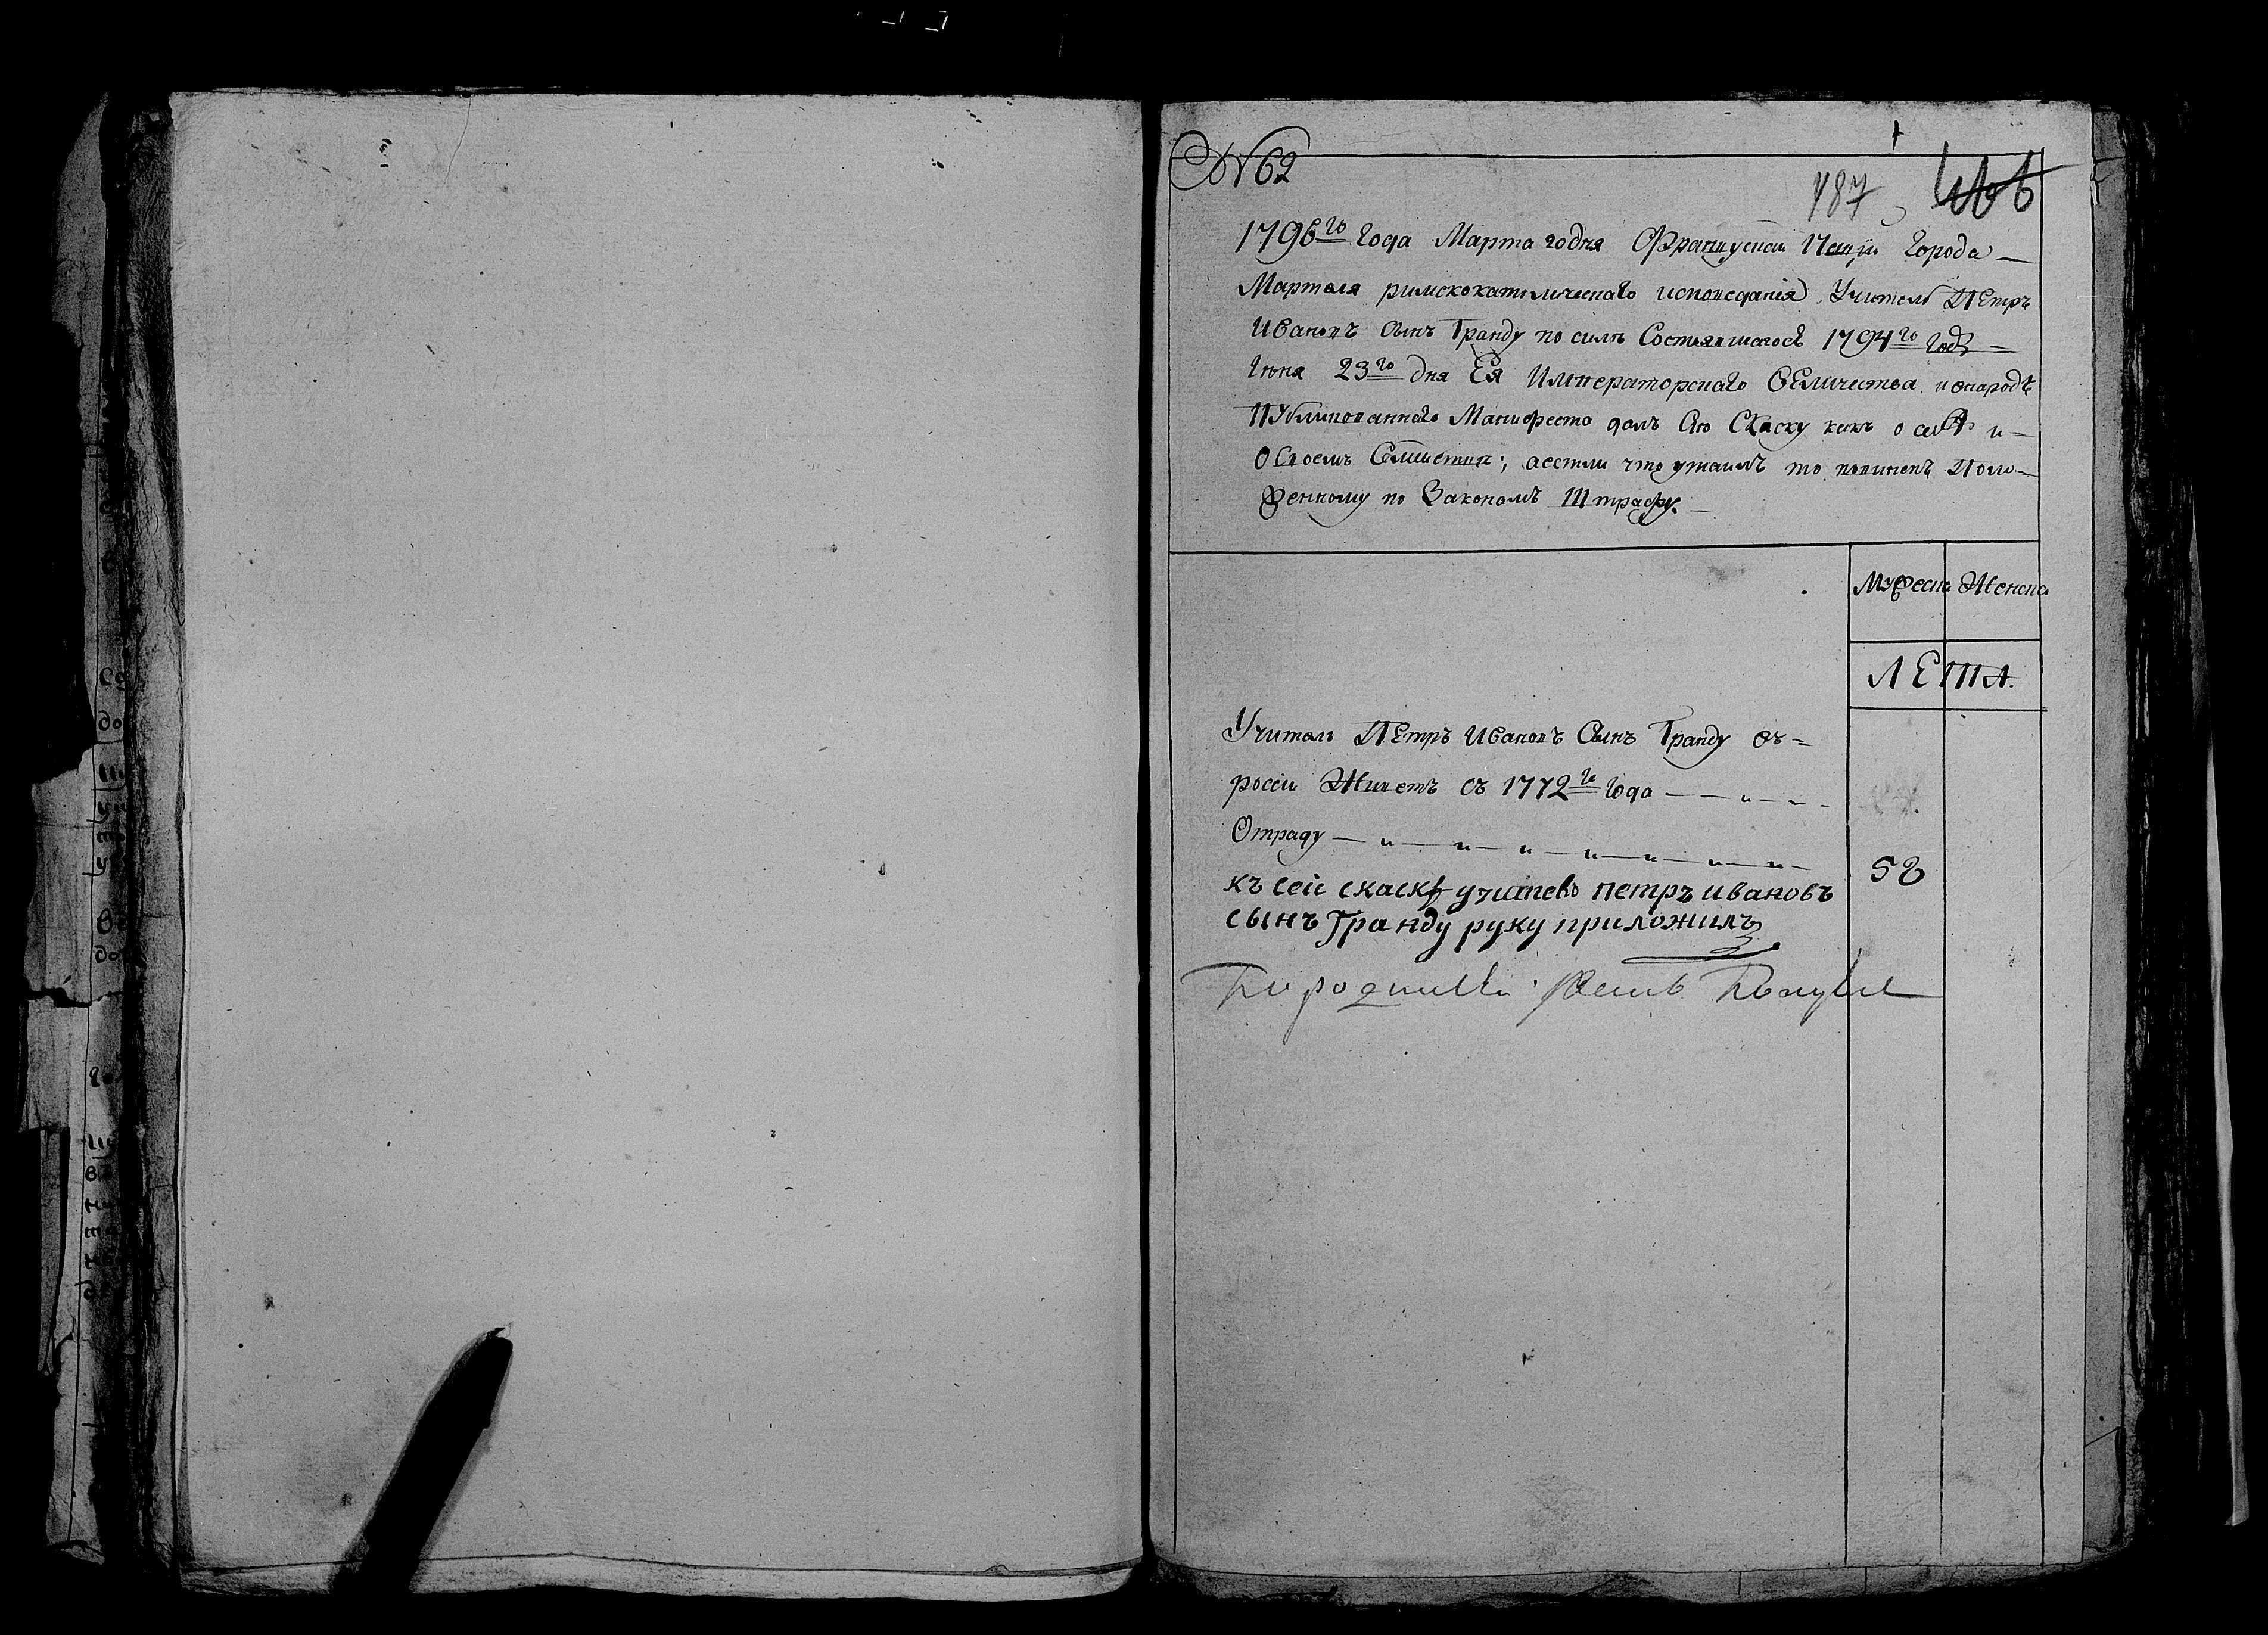 № 62
487
1796го Года Марта го дня Французской Нацïи Города
Мартеля римскокатолическаго исповеданïя Учитель Петръ
Ивановъ Сынъ Транду по силѣ Состоявшегося 1794го Года
Iюня 23го дня Ея Императорскаго Величества ивнародъ
Публикованнаго Манифеста далъ Сïю Скаску какъ о себѣ и
о Своемъ Семействѣ; аестли что утаилъ то повиненъ Поло-
женному по Закономъ Штрафу.
Мужеска Женска
ЛЕТА.
Учитель Петръ Ивановъ Сынъ Транду въ=
россiи Живетъ съ 1772го Года
Отраду
58
къ сей скаскѣ учитель петръ ивановъ
сынъ Транду руку приложилъ